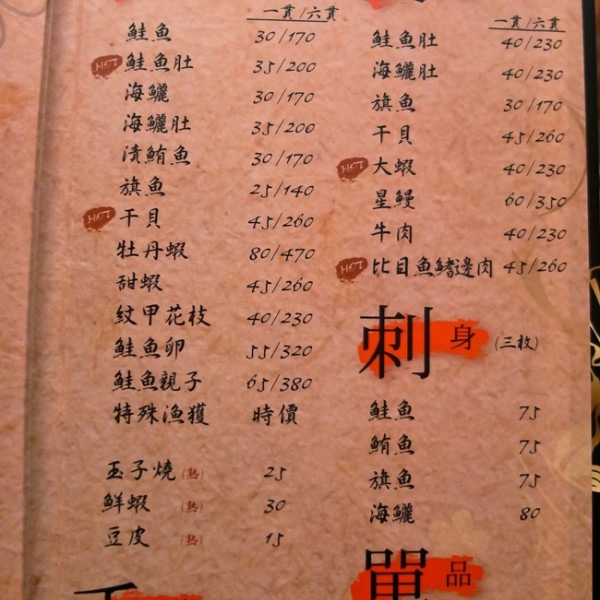 一貫/六貫
鮭魚 30/170
HOT 鮭魚肚 35/200
海鱺 30/170
海鱺肚 35/200
漬鮪魚 30/170
旗魚 25/140
HOT 干貝 45/260
牡丹蝦 80/470
甜蝦 45/260
紋甲花枝 40/230
鮭魚卵 55/320
鮭魚親子 65/380
特殊漁獲 時價
玉子燒(熟) 25
鮮蝦(熟) 30
豆皮(熟) 15
一貫/六貫
鮭魚肚 40/230
海鱺肚 40/230
旗魚 30/170
干貝 45/260
HOT 大蝦 40/230
星鰻 60/350
牛肉 40/230
HOT 比目魚鰭邊肉 45/260
刺身(三枚)
鮭魚 75
鮪魚 75
旗魚 75
海鱺 80
單品